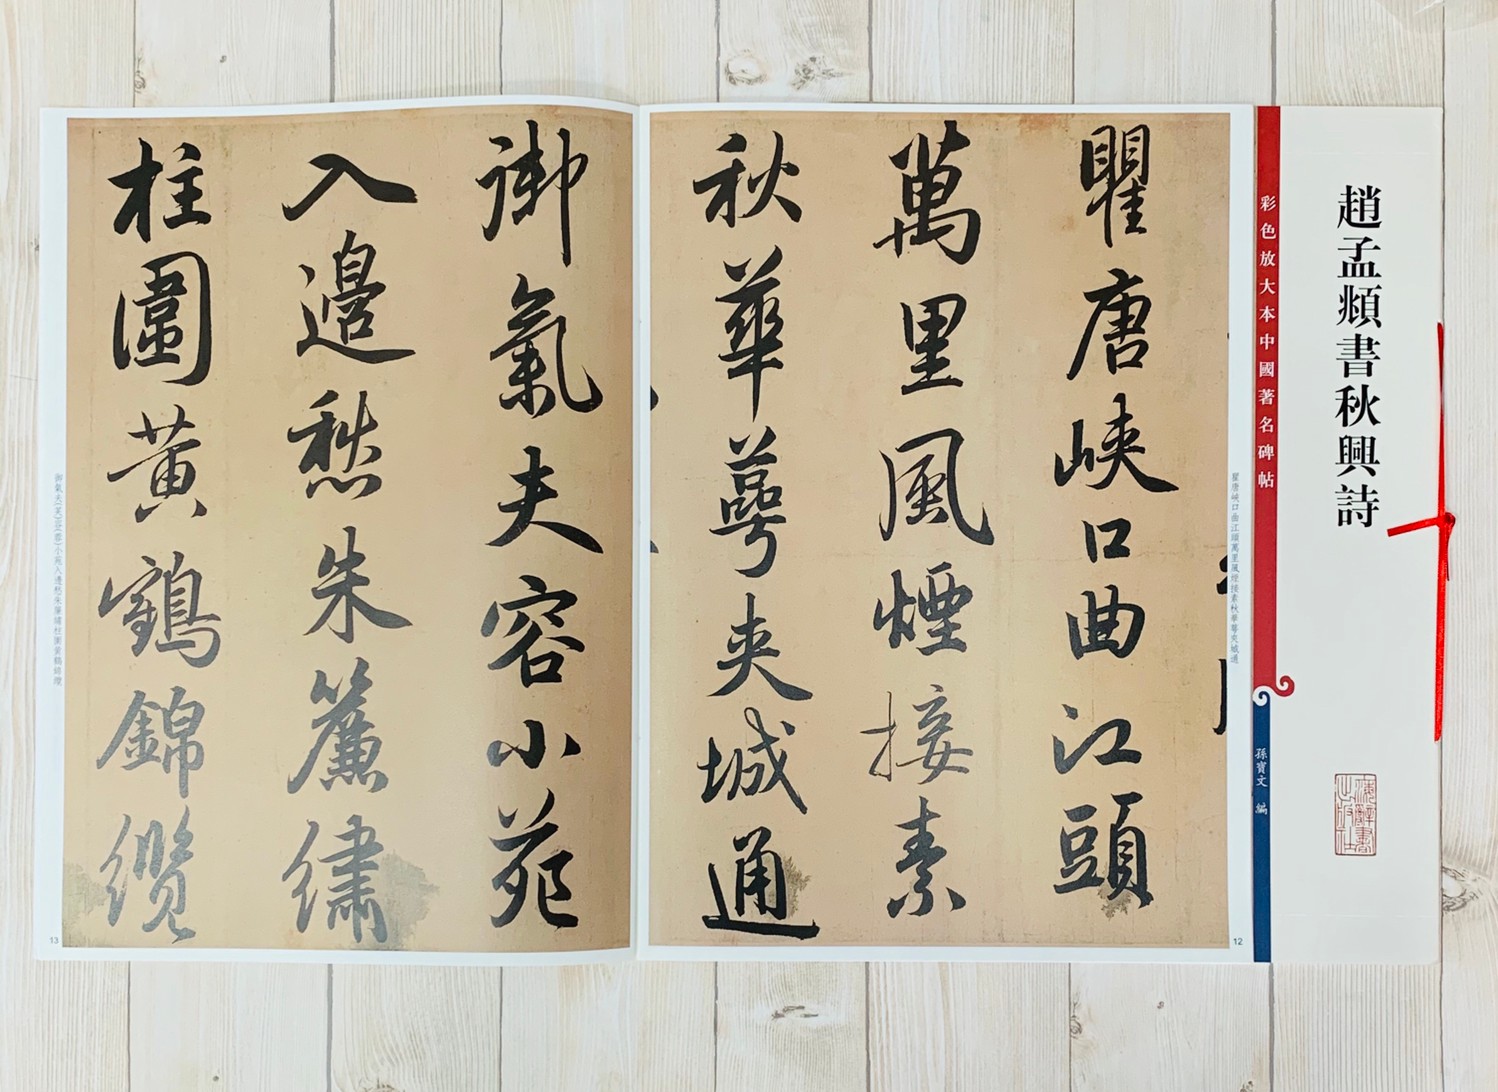 趙孟頫書秋興詩
彩色放大本中國著名碑帖
孫寶文 編
瞿唐峽口曲江頭萬里風煙接素秋華萼夾城通
瞿唐峽口曲江頭
萬里風煙接素
秋華萼夾城通
12
御氣夫容小苑
入邊愁朱簾繡
柱圍黃鶴錦纜
御氣夫(芙)容(蓉)小苑入邊愁朱簾繡柱圍黃鶴錦纜
13